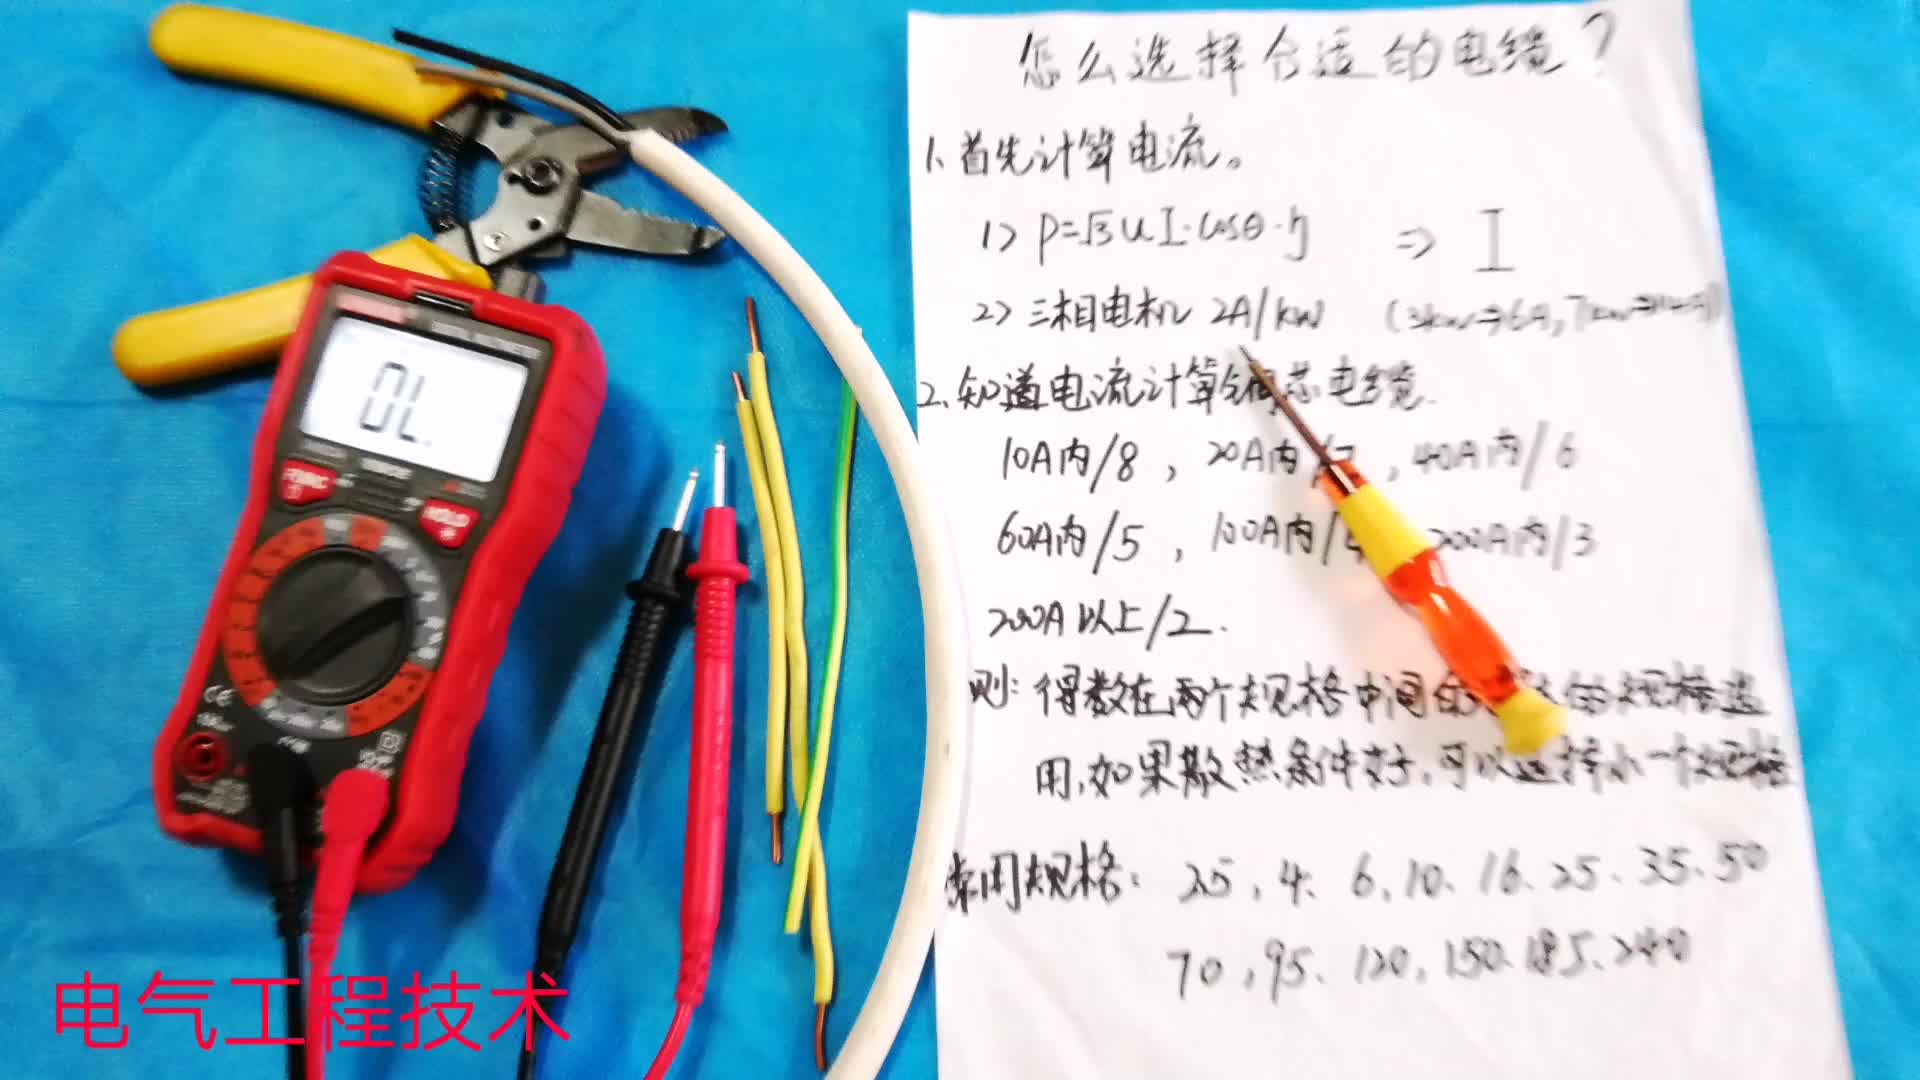 怎么选择合适的电缆?
1、首先计算电流。
1> P=√3UI·cosθ·η => I
2> 三相电机 2A/kW (3kW⇒6A,7kW⇒14A)
2、知道电流计算铜芯电缆.
10A内/8, 20A内/7, 40A内/6
60A内/5, 100A内/4 200A内/3
200A以上/2.
则: 得数在两个规格中间的 的规格选
用,如果散热条件好,可以选择小一个规格
常用规格: 2.5, 4、6、10、16、25、35、50
70, 95、120, 150、185、240
OL
FUNC
HOLD
CE
电气工程技术